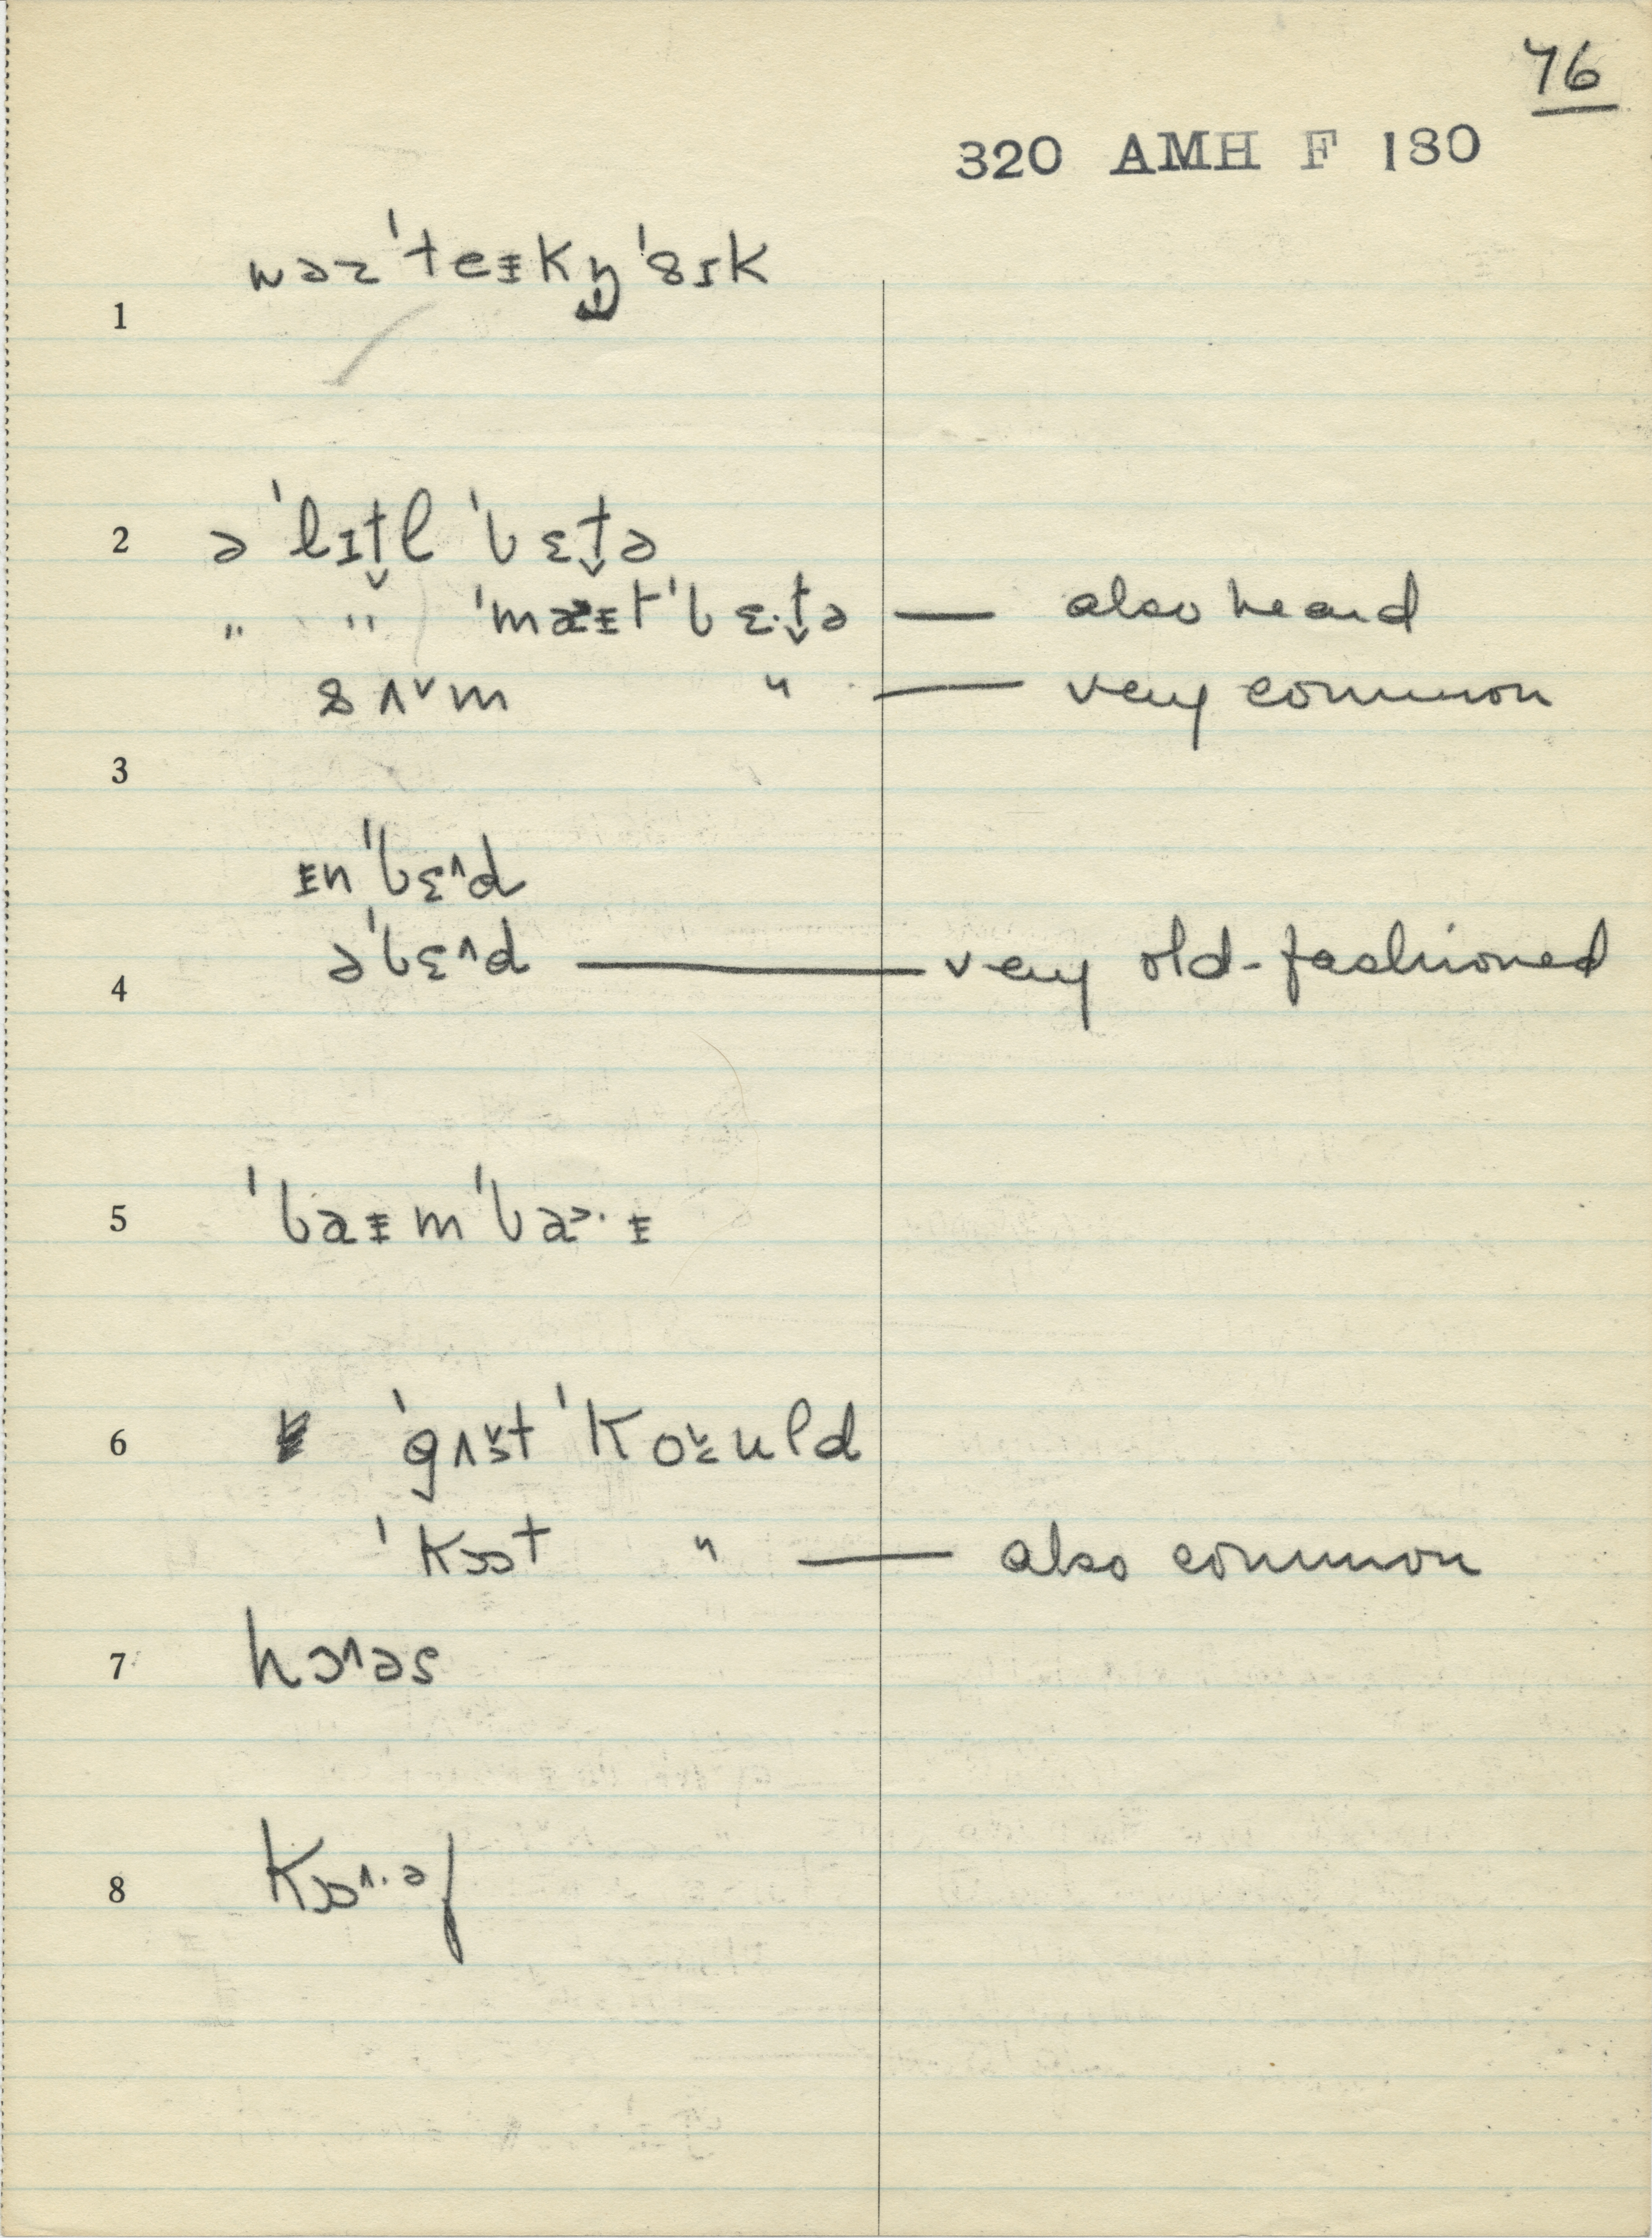 76
320 AMH F 180
wəzˈteɪkŋ̩ˈsɪk
1
2 ə ˈlɪt̬l ˈbɛt̬ə
" " ˈmaɪtˈbɛ·t̬ə — also heard
sʌᵛm " — very common
3
ɪnˈbɛ^d
4 əˈbɛ^d — very old-fashioned
5 ˈbaɪmˈba˃·ɪ
6 ˈgʌᵛt ˈkould
ˈkɔt " — also common
7 hɔ^əs
8 kɔ^·əf